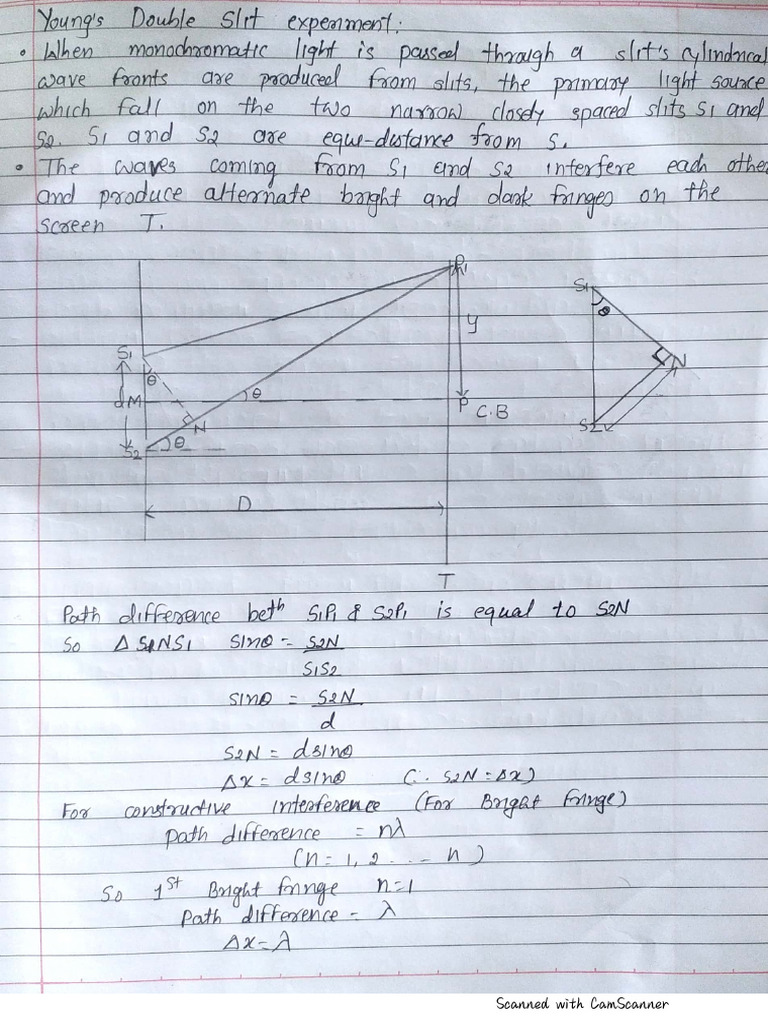 Young's Double Slit experiment:
• When monochromatic light is passed through a slit's cylindrical
wave fronts are produced from slits, the primary light source
which fall on the two narrow closely spaced slits S1 and
S2. S1 and S2 are eque-distance from S.
• The waves coming from S1 and S2 interfere each other
and produce alternate bright and dark fringes on the
screen T.
P1
S1
θ
y
S1
θ
N
d M
θ
P
C.B
N
S2
θ
S2
D
T
Path difference betⁿ S1P1 & S2P1 is equal to S2N
So Δ S2NS1 sinθ = S2N
S1S2
sinθ = S2N
d
S2N = dsinθ
Δx = dsinθ (∵ S2N = Δx)
For constructive interference (For Bright Fringe)
path difference = nλ
(n = 1, 2 ... n)
So 1st Bright fringe n=1
Path difference = λ
Δx = λ
Scanned with CamScanner